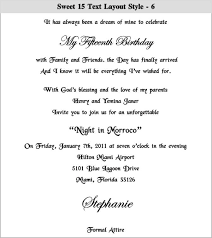 Sweet 15 Text Layout Style - 6
It has always been a dream of mine to celebrate
My Fifteenth Birthday
with Family and Friends, the Day has finally arrived
And I know it will be everything I've wished for.
With God's blessing and the love of my parents
Henry and Yemina Janer
Invite you to join us for an unforgettable
"Night in Morroco"
On Friday, January 7th, 2011 at seven o'clock in the evening
Hilton Miami Airport
5101 Blue Lagoon Drive
Miami, Florida 33126
Stephanie
Formal Attire